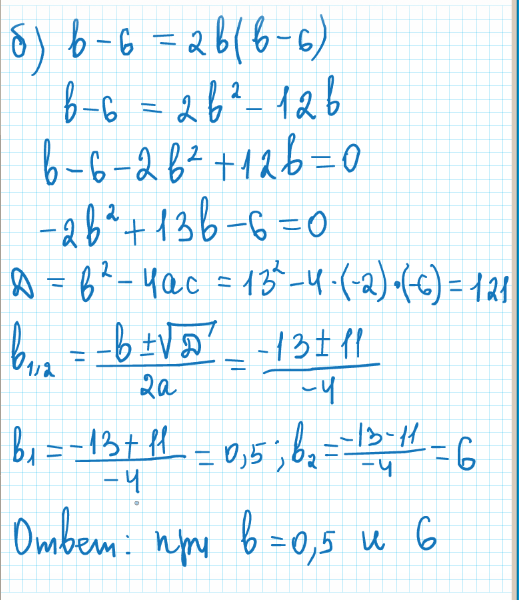 б) b - 6 = 2b(b - 6)
b - 6 = 2b² - 12b
b - 6 - 2b² + 12b = 0
-2b² + 13b - 6 = 0
D = b² - 4ac = 13² - 4·(-2)·(-6) = 121
b₁,₂ = (-b ± √D)/(2a) = (-13 ± 11)/(-4)
b₁ = (-13 + 11)/(-4) = 0,5; b₂ = (-13 - 11)/(-4) = 6
Ответ: при b = 0,5 и 6